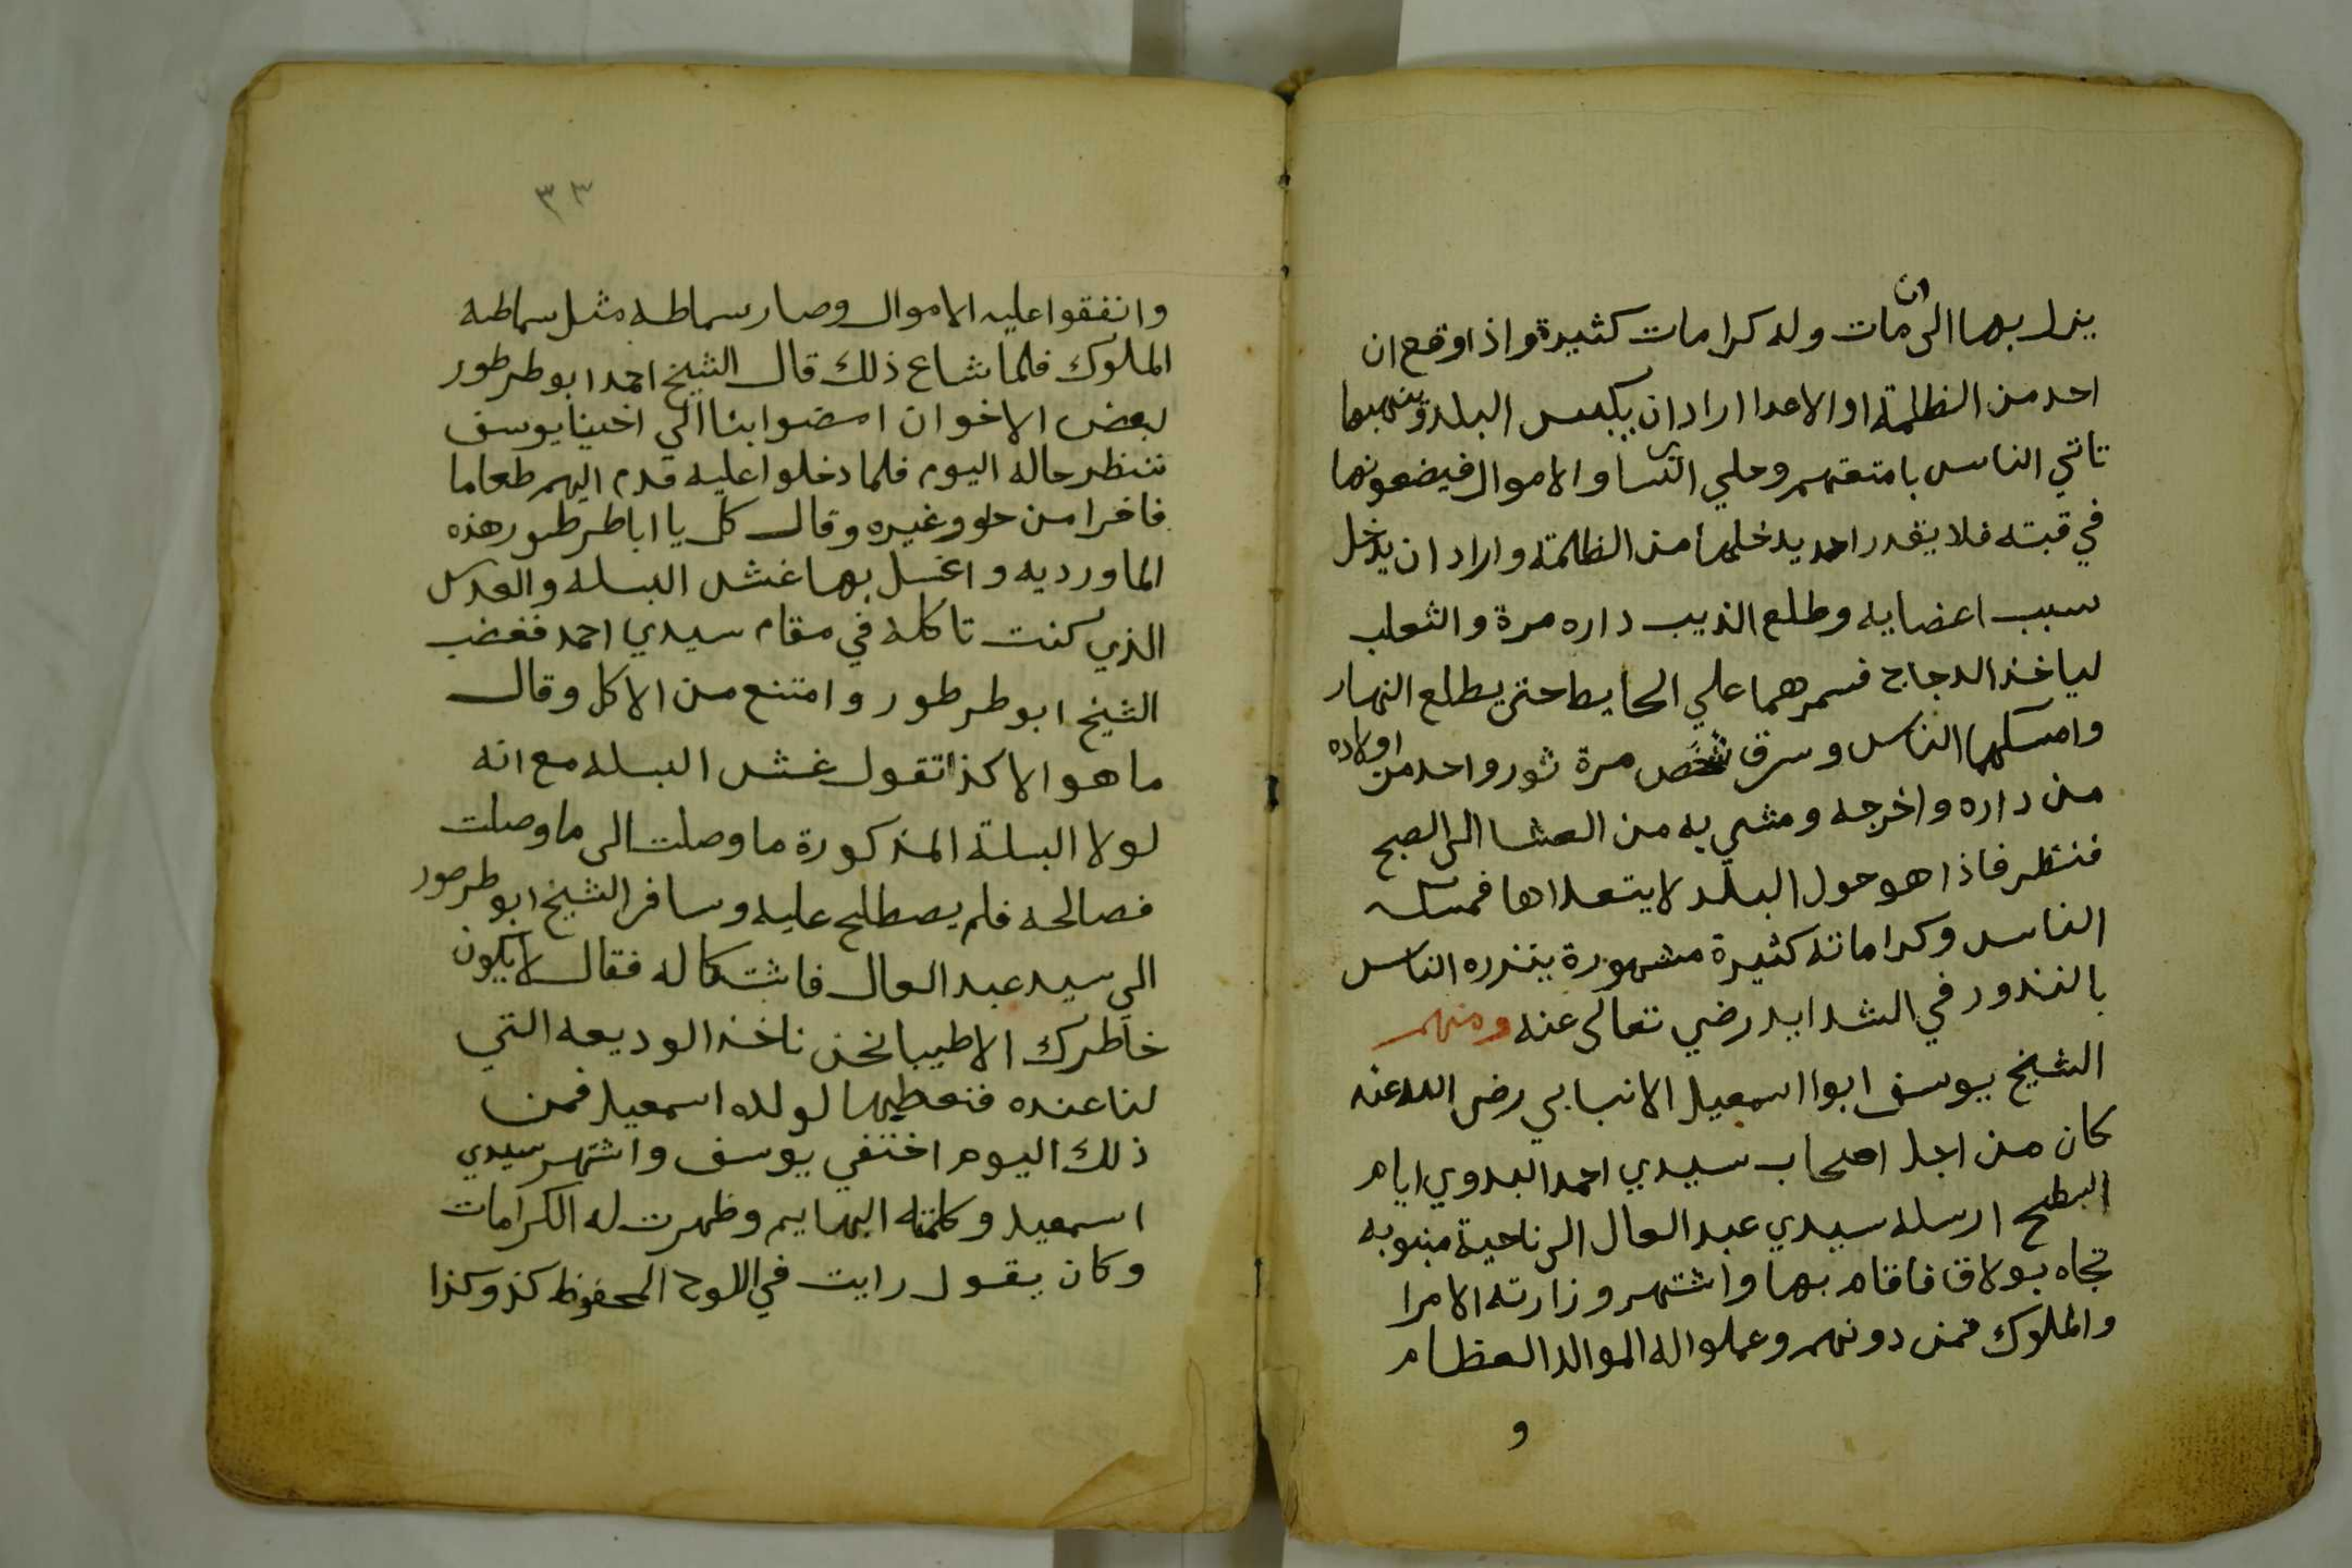 يزل بها الى ان مات وله كرامات كثيرة واذا وقع ان
احد من الظلمة او الاعدا اراد ان يكبس البلد وينهبها
تاتي الناس بامتعتهم وحلي النسا والاموال فيضعونها
في قبته فلا يقدر احد يدخلها من الظلمة واراد ان يدخل
سبب اعضايه وطلع الذيب داره مرة والثعلب
لياخذ الدجاج فسمرهما علي الحايط حتى يطلع النهار
وامسكهما الناس وسرق شخص مرة ثور واحد من اولاده
من داره واخرجه ومشي به من العشا الى الصبح
فنظر فاذا هو حول البلد لا يتعداها فمسكه
الناس وكراماته كثيرة مشهورة ينذره الناس
بالنذور في الشدايد رضي تعالى عنه ومنهم
الشيخ يوسف ابوا اسمعيل الانبابي رضى الله عنه
كان من اجل اصحاب سيدي احمد البدوي ايام
السطح ارسله سيدي عبد العال الى ناحية منبوبه
تجاه بولاق فاقام بها واشتهر وزارته الامرا
والملوك فمن دونهم وعملوا له الموالد العظام
و
٣٣
وانفقوا عليه الاموال وصار سماطه مثل سماطه
الملوك فلما شاع ذلك قال الشيخ احمد ابو طرطور
لبعض الاخوان امضوا بنا الي اخينا يوسف
ننظر حاله اليوم فلما دخلوا عليه قدم اليهم طعاما
فاخرا من حلو وغيره وقال كل يا ابا طرطور هذه
الماورديه واغسل بها غش البسله والعدس
الذي كنت تاكله في مقام سيدي احمد فغضب
الشيخ ابو طرطور وامتنع من الاكل وقال
ما هو الا كذا تقول غش البسله مع انه
لولا البسلة المذكورة ما وصلت الى ما وصلت
فصالحه فلم يصطلح عليه وسافر الشيخ ابو طرطور
الي سيد عبد العال فاشتكا له فقال لا يكون
خاطرك الا طيبا نحن ناخذ الوديعه التي
لنا عنده فنعطيها لولده اسمعيل فمن
ذلك اليوم اختفي يوسف واشتهر سيدي
اسمعيل وكلمته البهايم وظهرت له الكرامات
وكان يقول رايت في اللوح المحفوظ كذ وكذا